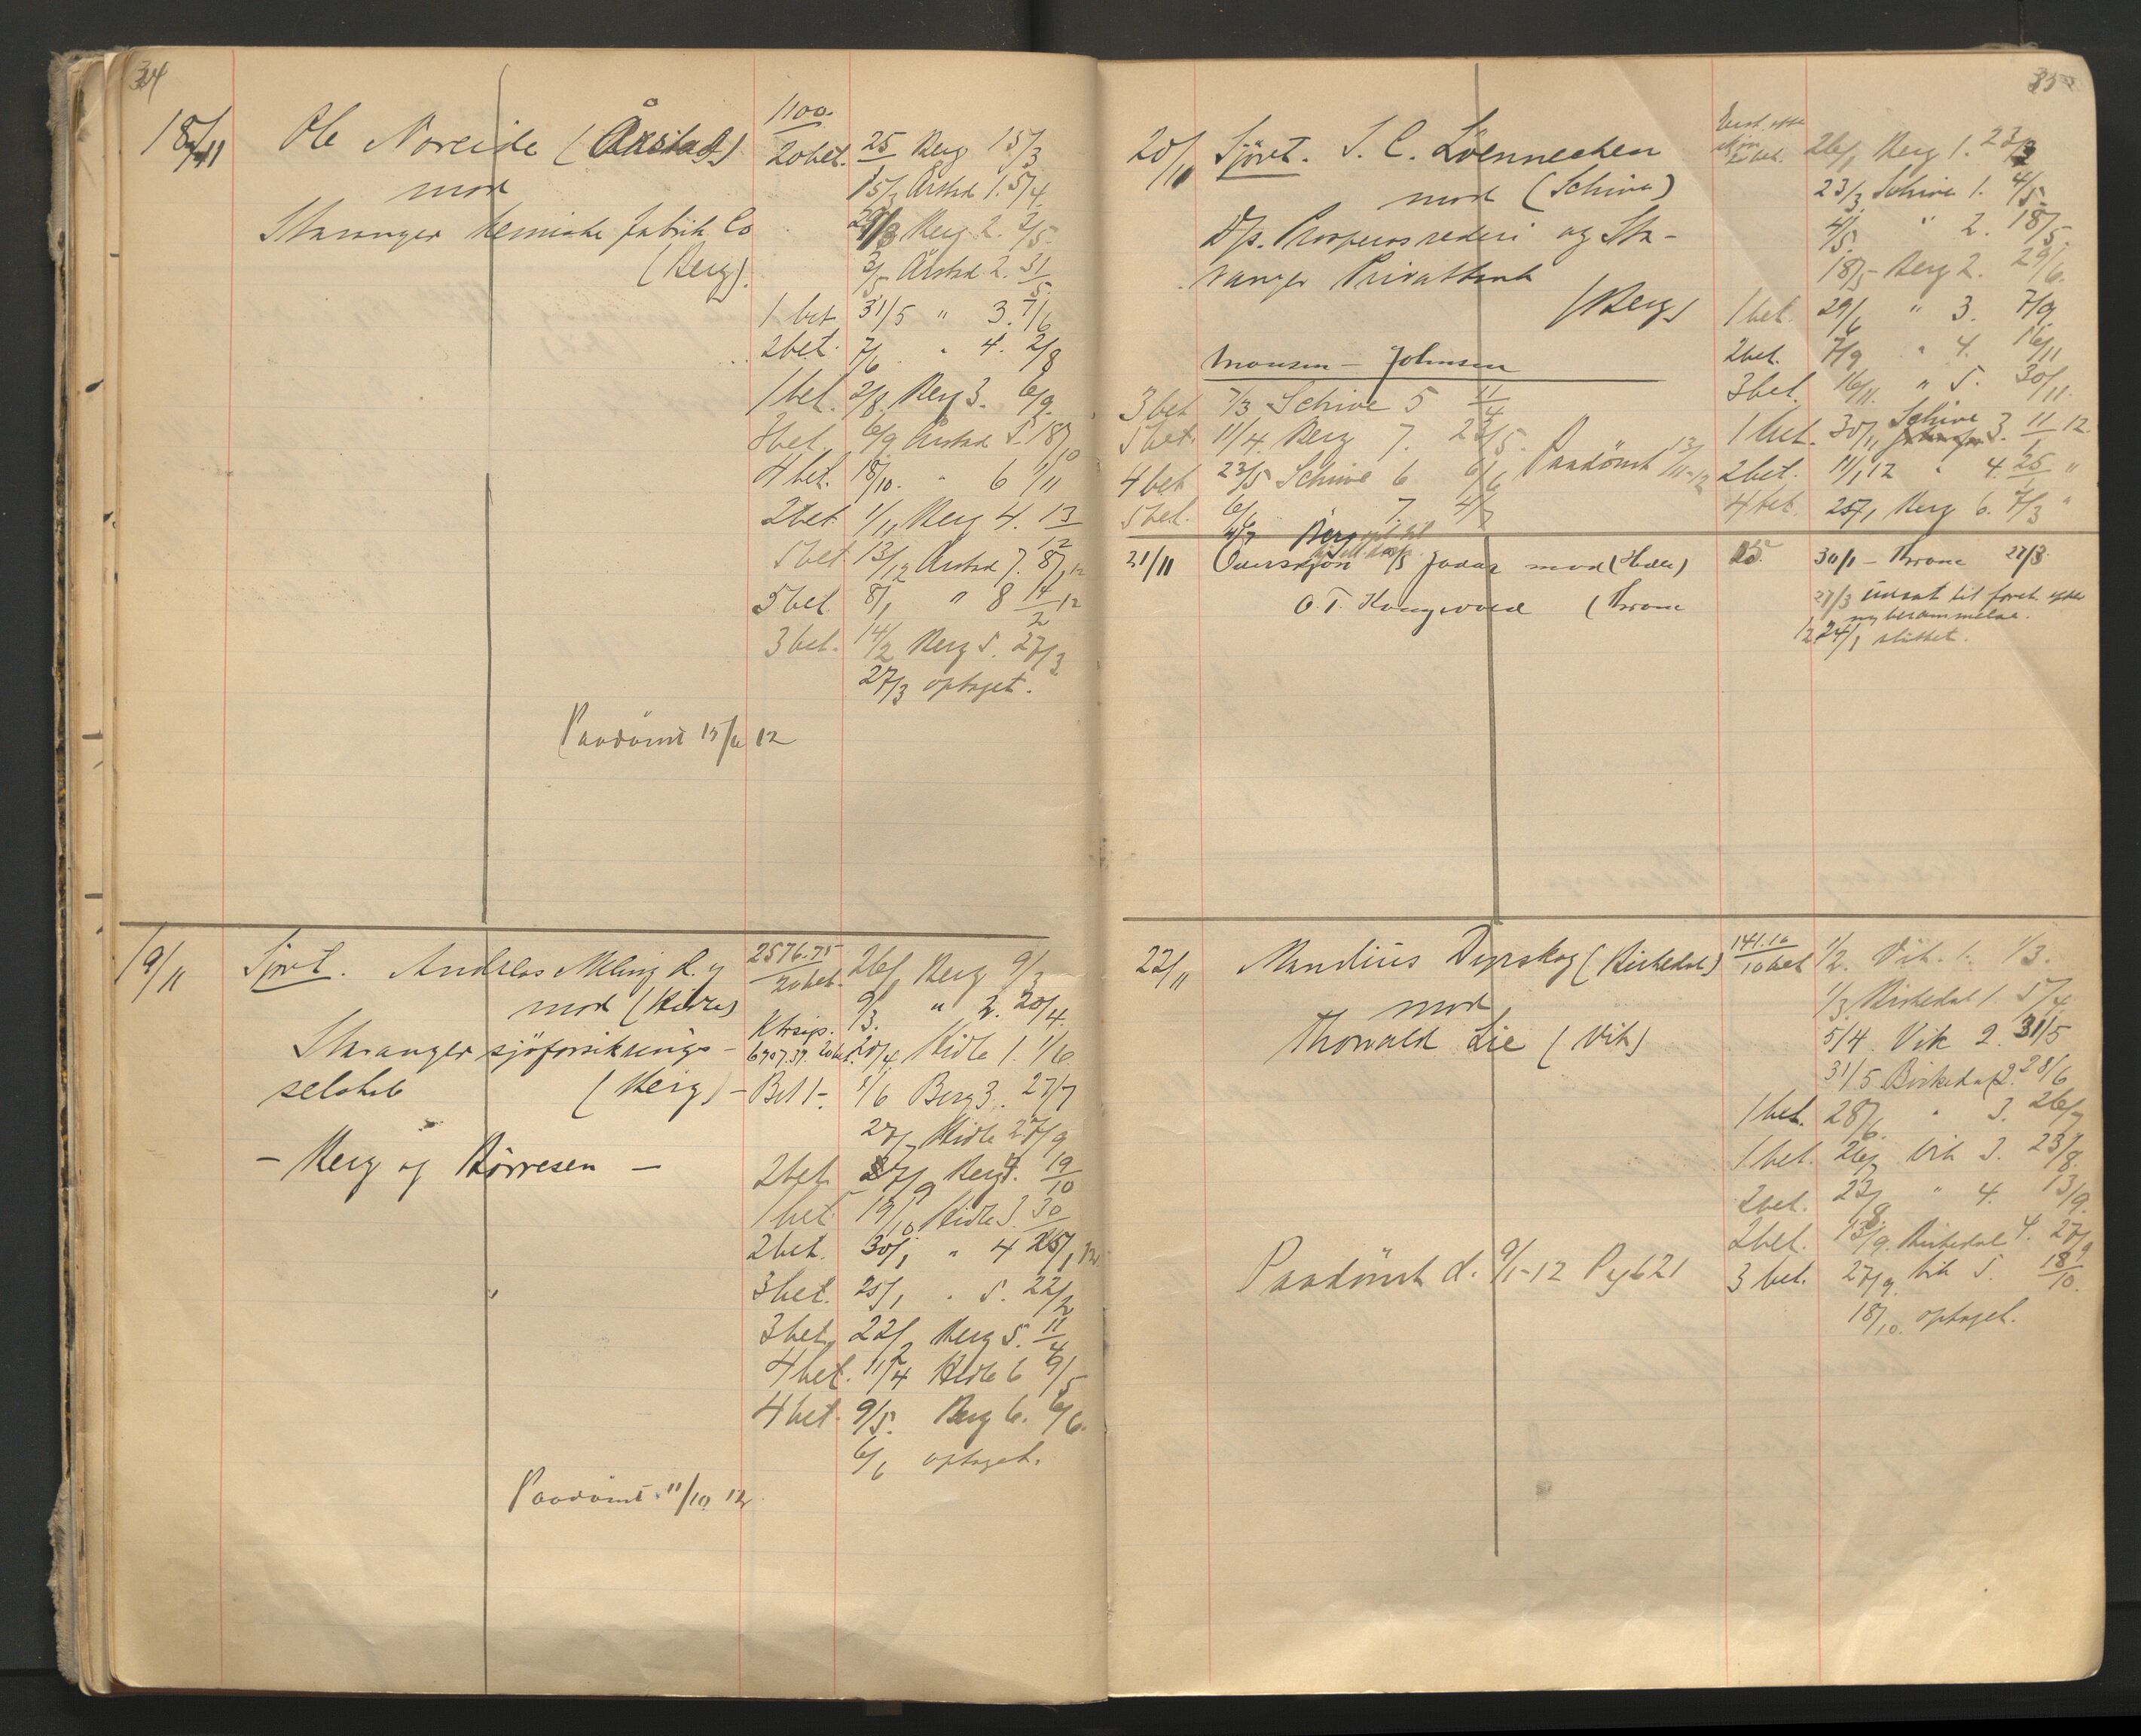 34
18/11 Ole Noreide (Årstad) 1100 / 20 bet. 25/1 Berg 15/3
mod 15/3 Årstad 1. 5/4
Stavanger kemiske fabrik Co Berg 2. 2/5
(Berg) 3/5 Årstad 2. 31/5
1 bet 31/5 " 3. 7/6
2 bet. 7/6 " 4. 2/8
1 bet. 2/8 Berg 3. 6/9
3 bet. 6/9 Årstad 5. 18/10
4 bet. 18/10 " 6 1/11
2 bet 1/11 Berg 4. 13/12
5 bet 13/12 Årstad 7. 8/1 12
5 bet. 8/1 " 8 14/2 12
3 bet. 14/2 Berg 5. 27/3
27/3 optaget.
Paadömt 12
19/11 Sjöret. Andreas Meling d.y. 2576.75 / 20 bet. 26/1 Berg 9/3
mod (Hidle) 9/3 " 2. 20/4
Stavanger sjöforsikrings- 20/4 Hidle 1. 1/6
selskab (Berg) - Bet 1 - 1/6 Berg 3. 27/7
27/7 Hidle 27/9
- Berg og Börresen -
2 bet 27/9 Berg 4. 19/10
1 bet 19/10 Hidle 3. 30
2 bet. " 4 25/1 12
3 bet. 25/1 " 5. 22/2
3 bet. 22/2 Berg 5. 11/4
4 bet. 11/4 Hidle 6 9/5
4 bet. 9/5 Berg 6. 6/6
6/6 optaget.
Paadömt 11/10 12
35
20/11 Sjöret. S. C. Löennechen 26/1 Berg 1. 23/3
mod (Schive) 23/3 Schive 1. 4/5
D/s. Prosperos rederi og Sta- 4/5 " 2. 18/5
vanger Privatbank 18/5 Berg 2. 29/6
(Berg) 1 bet. 29/6 " 3. 7/9
Monsen - Johnsen 2 bet. 7/9 " 4. 16/11
3 bet 7/3 Schive 5 11/4 3 bet. 16/11 " 5. 30/11
5 bet. 11/4 Berg 7. 23/5 1 bet. 30/11 Schive 3. 11/1 12.
4 bet 23/5 Schive 6 6/6 Paadömt 13/11-12 2 bet. 11/1 12 " 4. 25/1 "
5 bet. 6/6 7. 4/7 4 bet. 25/1 Berg 6. 7/3 "
4/7 Berg
21/11 A/S Jadar mod (Hidle) 15. 30/1 - Throne 27/3
O. T. (Throne 27/3 udsat til foret. efter
ny berammelse.
12 24/1 sluttet.
22/11 Mandius Dyrskog (Birkedal) 141.16 / 10 bet 1/2 Vik. 1. 1/3.
mod 1/3 Birkedal 1. 5/4
Thorvald Lie (Vik) 5/4 Vik 2. 31/5
31/5 Birkedal 2. 28/6
1 bet. 28/6 " 3. 26/7
1 bet. 26/7 Vik 3. 23/8
2 bet. 23/8 " 4. 13/9
2 bet. 13/9 Birkedal 4. 27/9
Paadömt d. 9/1-12 3 bet. 27/9 Vik 5. 18/10
18/10 optaget.